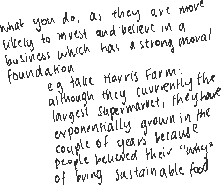 what you do, as they are more
likely to invest and believe in a
business which has a strong moral
foundation
eg take Harris Farm:
although they currently the
largest supermarket, they have
exponentially grown in the
couple of years because
people believed their "why"
of being sustainable food